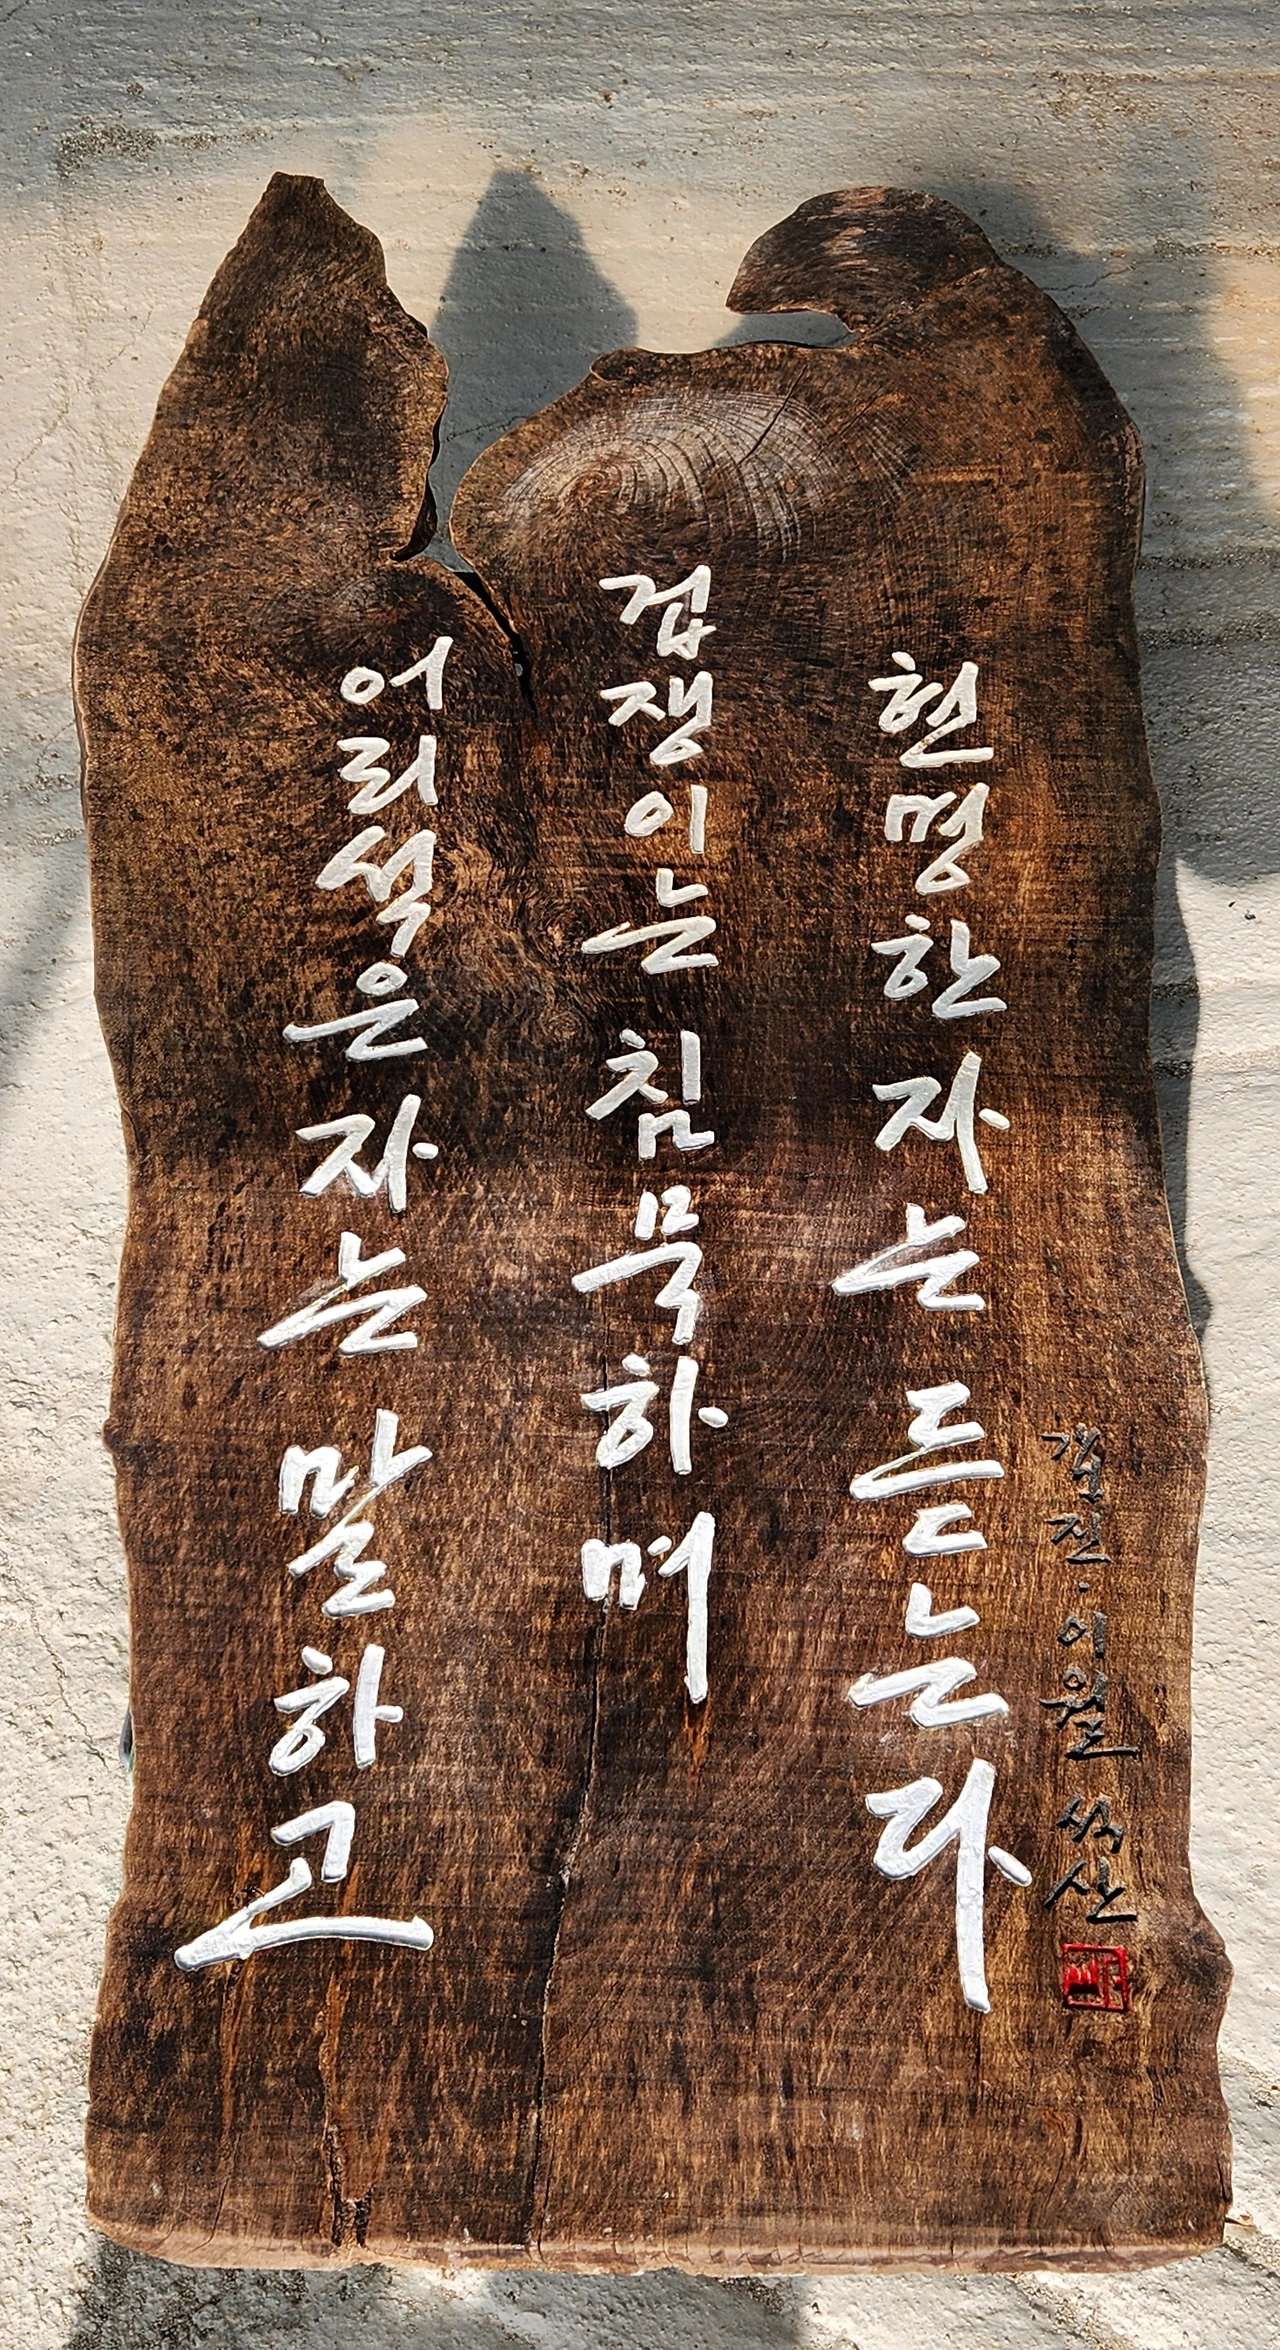 어리석은 자는 말하고
겁쟁이는 침묵하며
현명한 자는 듣는다
갑진·이월 석산